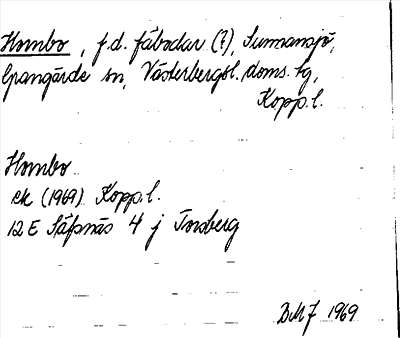 Hombo, f.d. fäbodar (?), Sunnansjö,
Grangärde sn, Västerbergsl. doms. tg,
Kopp.l.
Hombo
ek (1969) Kopp.l.
12E Säfsnäs 4 j Torsberg
DMF 1969